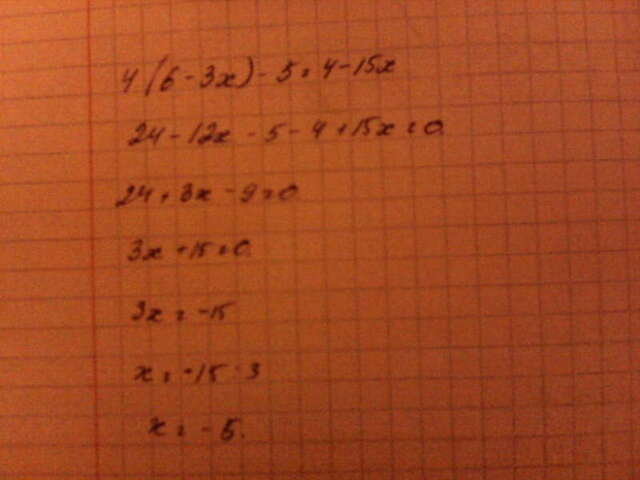 4(6-3x)-5=4-15x
24-12x-5-4+15x=0
24+3x-9=0
3x+15=0
3x=-15
x=-15:3
x=-5.